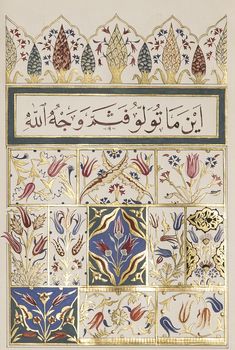 اَيْنَ مَا تُوَلُّوُ فَثَمَّ وَجْهُ اللّٰه